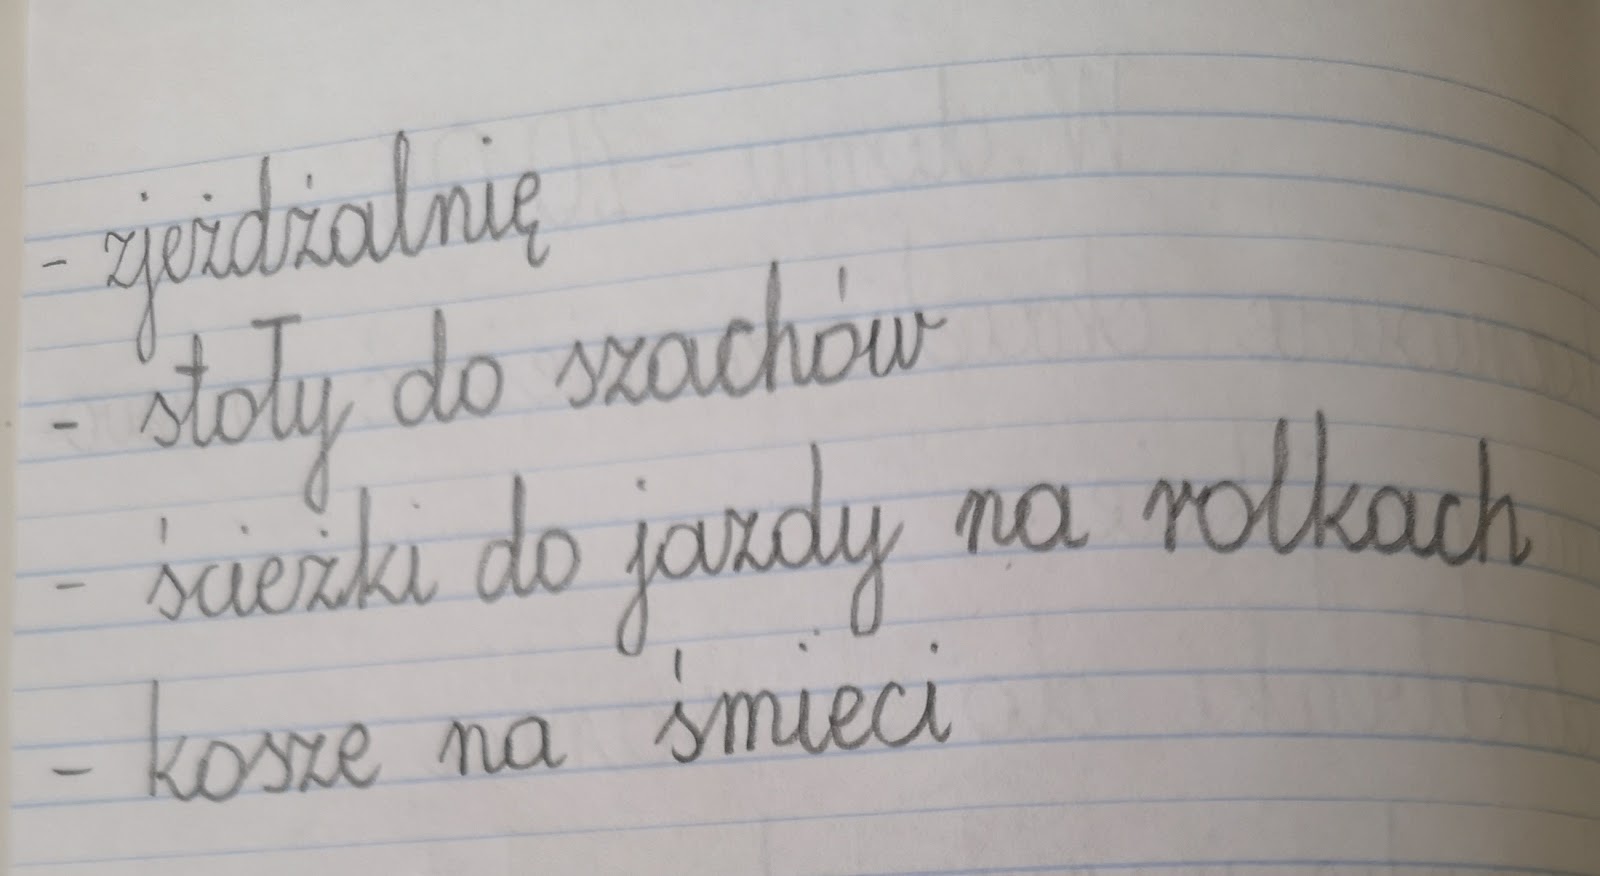 - zjeżdżalnię
- stoły do szachów
- ścieżki do jazdy na rolkach
- kosze na śmieci